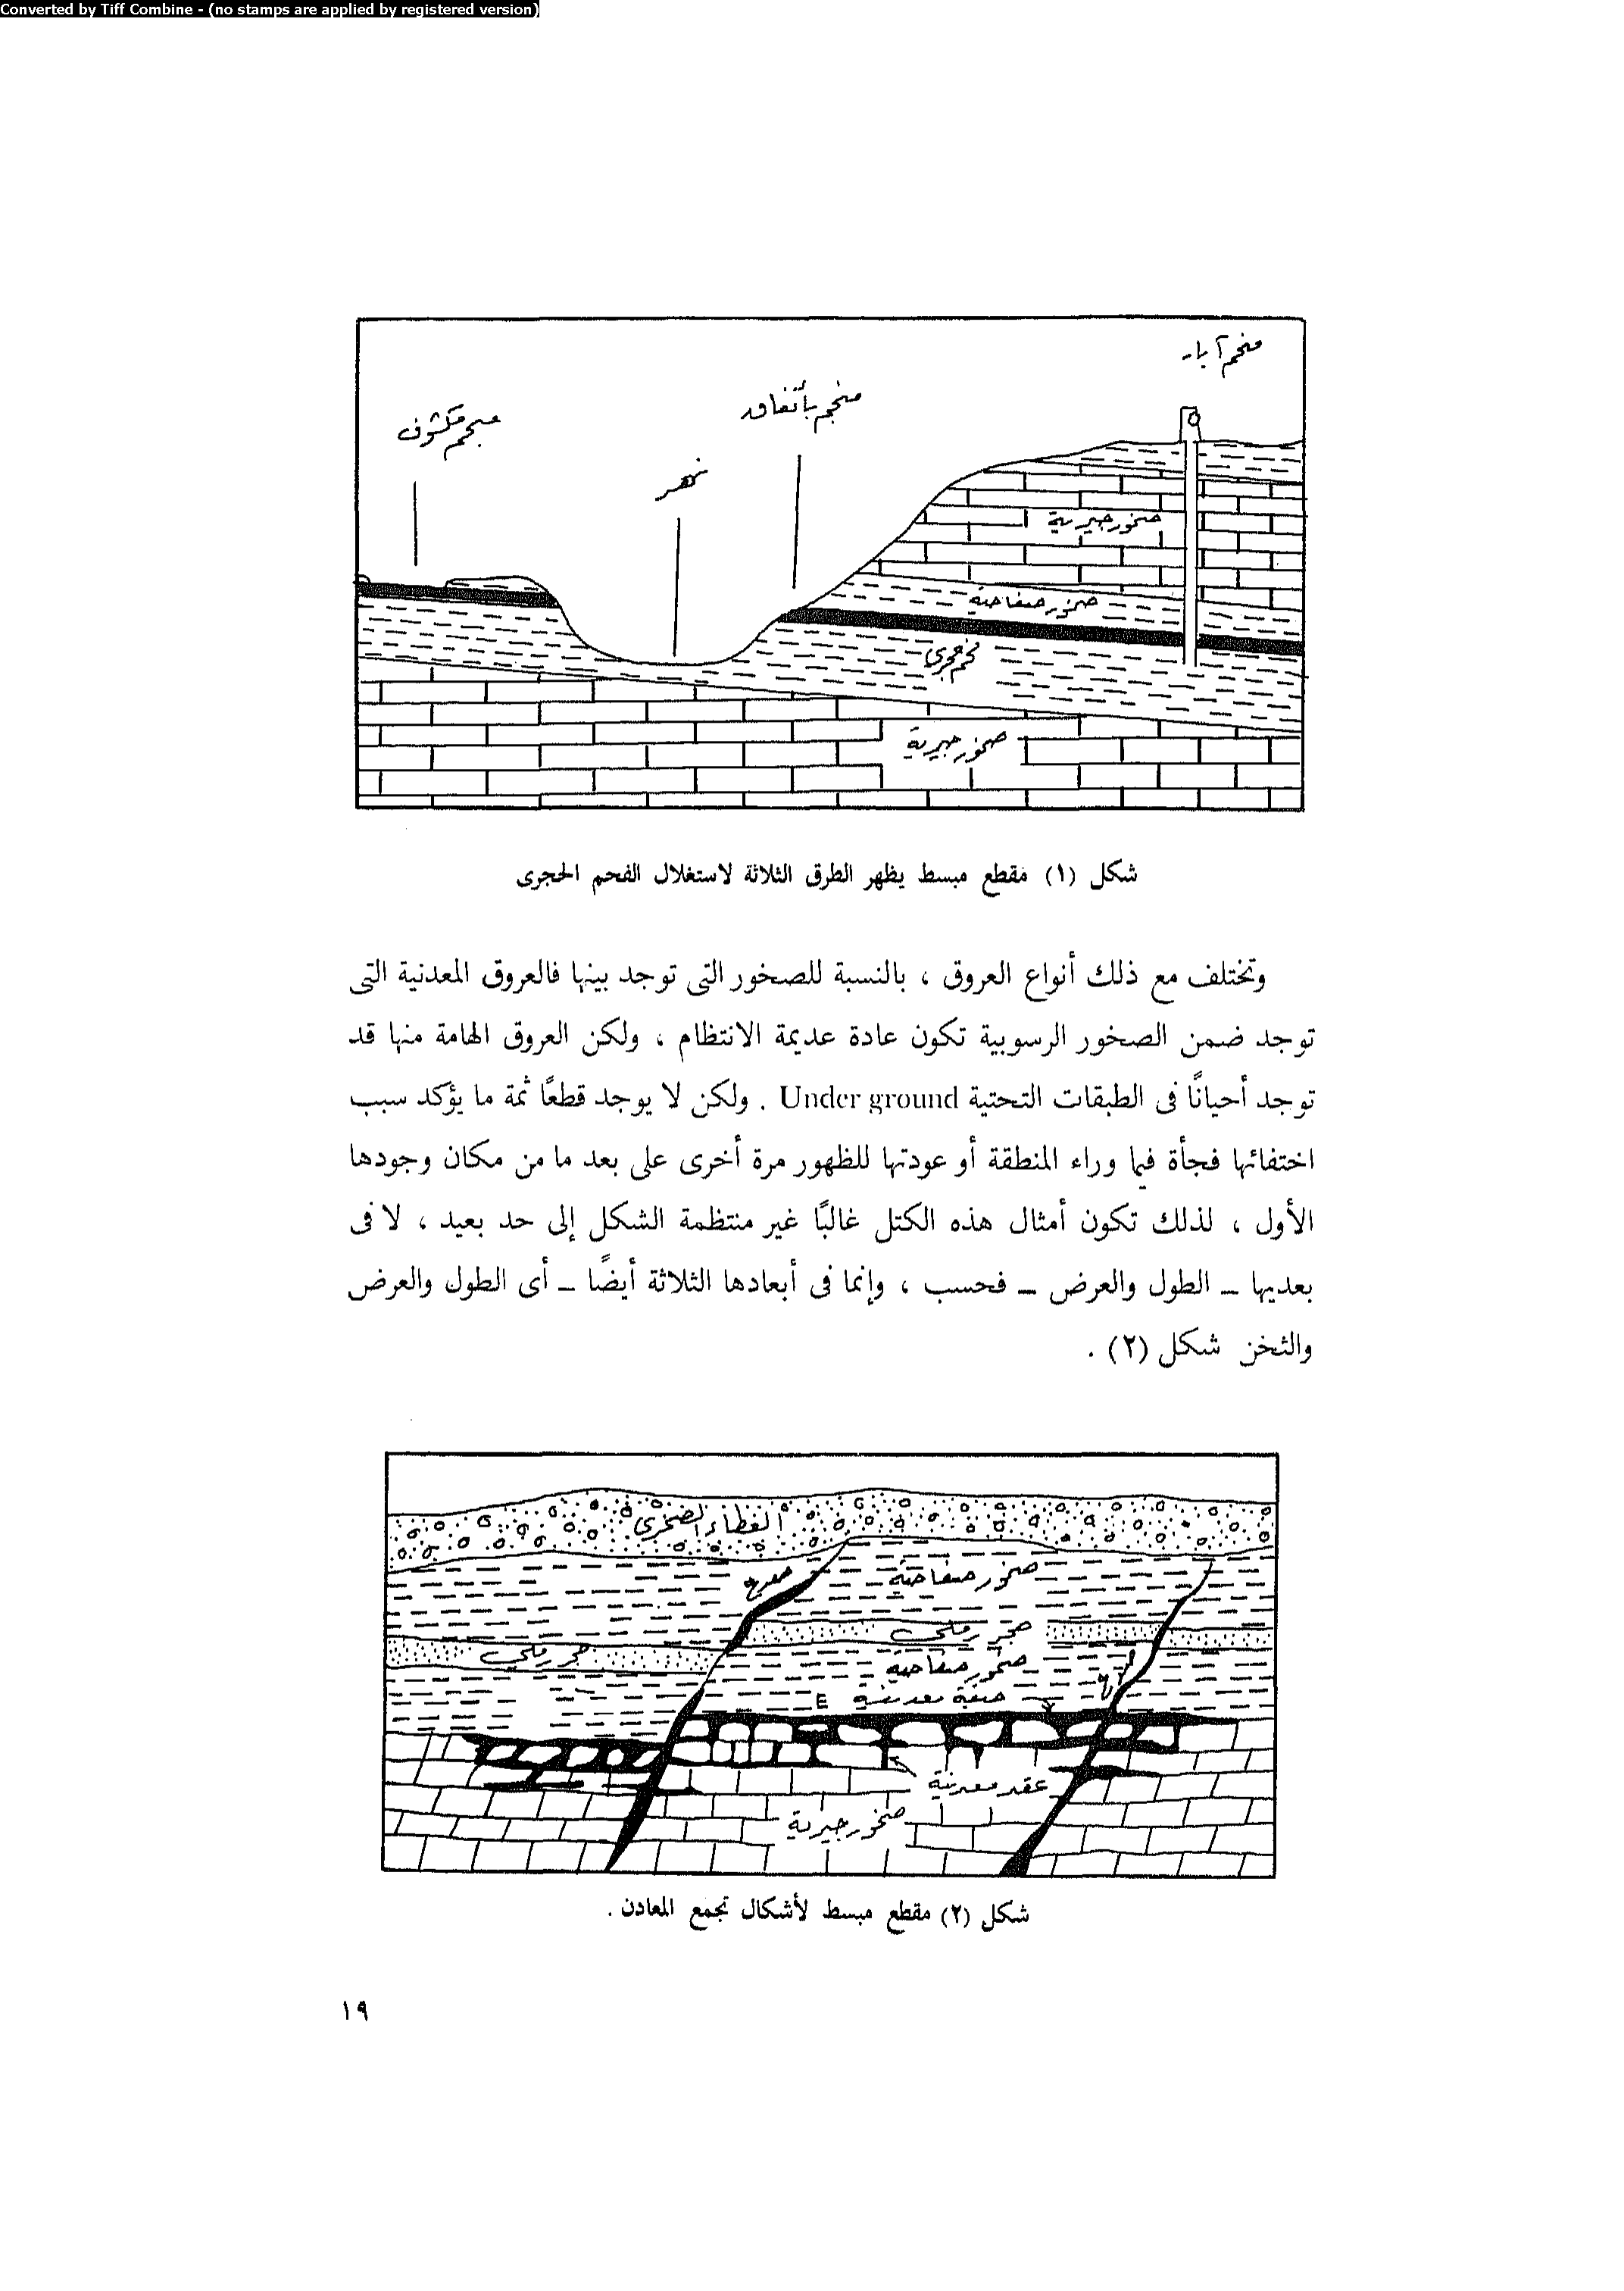 Converted by Tiff Combine - (no stamps are applied by registered version)
منجم آبار
منجم بأنفاق
منجم مكشوف
نهر
صخور جيرية
صخور صفاحية
فحم حجرى
صخور جيرية
شكل (١) مقطع مبسط يظهر الطرق الثلاثة لاستغلال الفحم الحجرى
وتختلف مع ذلك أنواع العروق ، بالنسبة للصخور التى توجد بينها فالعروق المعدنية التى
توجد ضمن الصخور الرسوبية تكون عادة عديمة الانتظام ، ولكن العروق الهامة منها قد
توجد أحيانًا فى الطبقات التحتية Under ground . ولكن لا يوجد قطعًا ثمة ما يؤكد سبب
اختفائها فجأة فيما وراء المنطقة أو عودتها للظهور مرة أخرى على بعد ما من مكان وجودها
الأول ، لذلك تكون أمثال هذه الكتل غالبًا غير منتظمة الشكل إلى حد بعيد ، لا فى
بعديها ــ الطول والعرض ــ فحسب ، وإنما فى أبعادها الثلاثة أيضًا ــ أى الطول والعرض
والثخن شكل (٢) .
الغطاء الصخرى
صخور صفاحية
حجر رملى
حجر رملى
صخور صفاحية
عقد معدنية
صخور جيرية
شكل (٢) مقطع مبسط لأشكال تجمع المعادن .
١٩